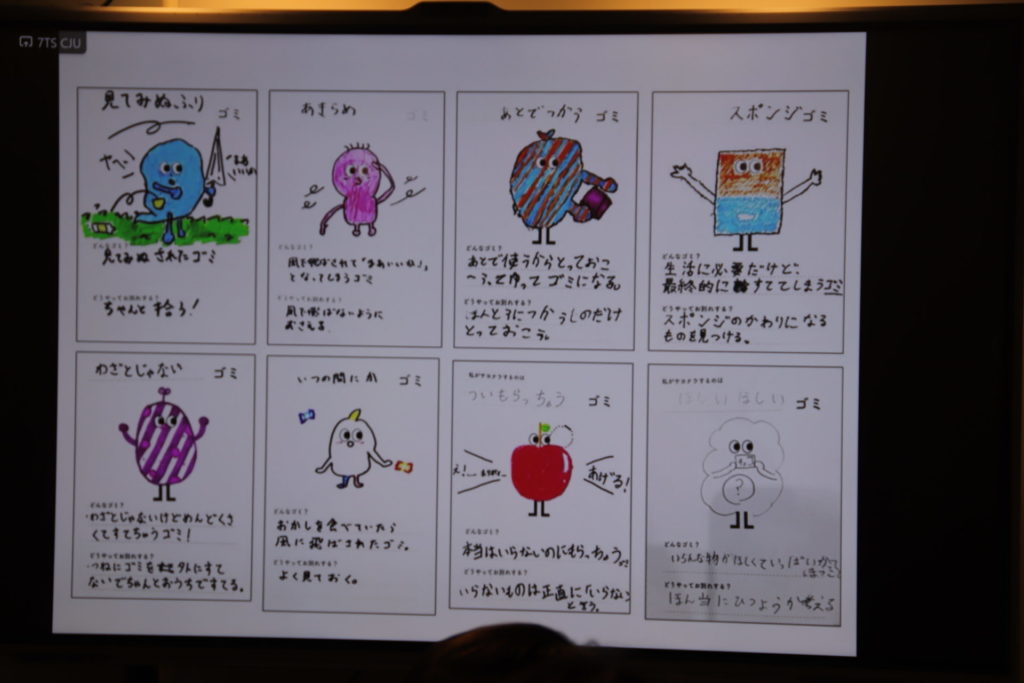 7TS CJU
見てみぬふり ゴミ
どんなゴミ？
見てみぬされたゴミ
どうやってお別れする？
ちゃんと拾う！
あきらめ ゴミ
どんなゴミ？
風で飛ばされて「まあいいね」
となってしまうゴミ
どうやってお別れする？
風で飛ばないように
おさえる
あとでつかう ゴミ
どんなゴミ？
あとで使うからとっておこ
〜うってゆってゴミになる。
どうやってお別れする？
ほんとうにつかうものだけ
とっておこう。
スポンジゴミ
どんなゴミ？
生活に必要だけど、
最終的にすててしまうゴミ
どうやってお別れする？
スポンジのかわりになる
ものを見つける。
わざとじゃない ゴミ
どんなゴミ？
わざとじゃないけどめんどくさ
くてすてちゃうゴミ！
どうやってお別れする？
つねにゴミを外にすて
ないでちゃんとおうちですてる。
いつの間にか ゴミ
どんなゴミ？
おかしを食べていたら
風に飛ばされたゴミ。
どうやってお別れする？
よく見ておく。
私がサヨナラするのは
ついもらっちゃう ゴミ
え！
あげる！
どんなゴミ？
本当はいらないのにもらっちゃう
どうやってお別れする？
いらないものは正直に「いらない
と言う。
私がサヨナラするのは
ほしいほしい ゴミ
?
どんなゴミ？
いろんな物がほしくて
どうやってお別れする？
ほん当にひつようか考える